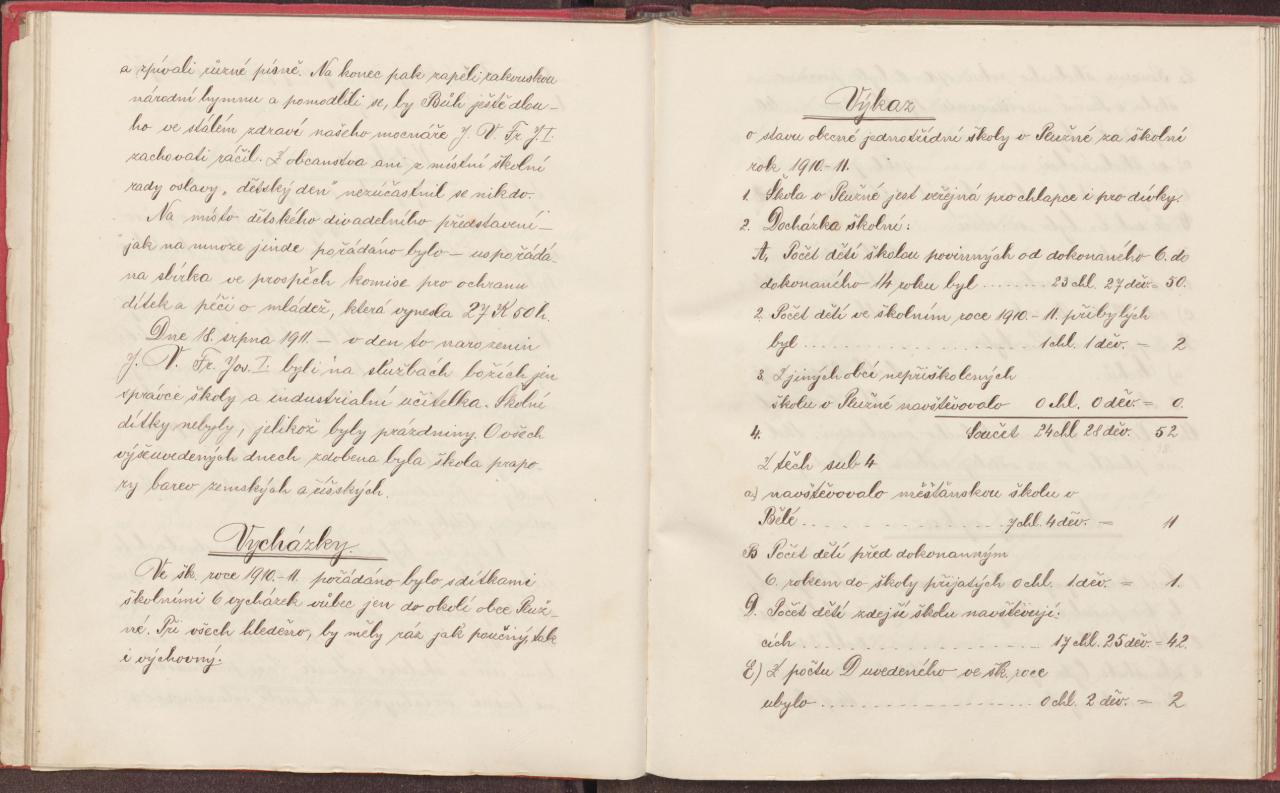 a zpívali různé písně. Na konec pak zapěli rakouskou
národní hymnu a pomodlili se, by Bůh ještě dlou-
ho ve stálém zdraví našeho mocnáře J. V. Fr. J. I.
zachovati ráčil. Z občanstva ani z místní školní
rady oslavy „dětský den" nezúčastnil se nikdo.
Na místo dětského divadelního představení –
jak na mnoze jinde pořádáno bylo – uspořádá-
na sbírka ve prospěch komise pro ochranu
dítek a péči o mládež, která vynesla 27 K 50 h.
Dne 18. srpna 1911. – v den to narozenin
J. V. Fr. Jos. I. byli na službách božích jen
správce školy a industrialní učitelka. Školní
dítky nebyly, jelikož byly prázdniny. O všech
výšeuvedených dnech zdobena byla škola prapo-
ry barev zemských a říšských.
Vycházky.
Ve šk. roce 1910.-11. pořádáno bylo s dítkami
školními 6 vycházek vůbec jen do okolí obce Pluž-
né. Při všech hleděno, by měly ráz jak poučný, tak
i výchovný.
Výkaz
o stavu obecné jednotřídní školy v Plužné za školní
rok 1910-11.
1. Škola v Plužné jest veřejná pro chlapce i pro dívky.
2. Docházka školní:
A. Počet dětí školou povinných od dokonaného 6. do
dokonaného 14 roku byl ........ 23 chl. 27 děv. = 50.
2. Počet dětí ve školním roce 1910-11. přibylých
byl .................... 1 chl. 1 děv. – 2
3. Z jiných obcí nepřiškolených
školu v Plužné navštěvovalo 0 chl. 0 děv. = 0.
4. Součet 24 chl 28 děv. 52
Z těch sub 4
a) navštěvovalo měšťanskou školu v
Bělé .................... 7 chl. 4 děv. = 11
B Počet dětí před dokonanným
6. rokem do školy přijatých 0 chl. 1 děv. = 1.
D. Počet dětí zdejší školu navštěvují-
cích .................... 17 chl. 25 děv. = 42.
E) Z počtu D uvedeného ve šk. roce
ubylo .................... 0 chl. 2 děv. = 2